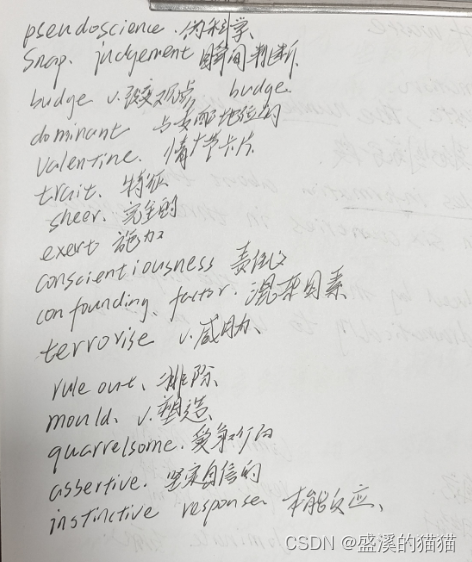 pseudoscience. 伪科学、
Snap. judgement 瞬间判断
budge v.改变观点 budge.
dominant 占支配地位的
valentine. 情人节卡片
trait. 特征
sheer. 完全的
exert 施加
conscientiousness 责任心
confounding. factor. 混杂因素
terrorise v.威胁、
rule out、排除
mould. v.塑造
quarrelsome. 爱争吵的
assertive. 坚定自信的
instinctive response. 本能反应、
CSDN @盛溪的猫猫